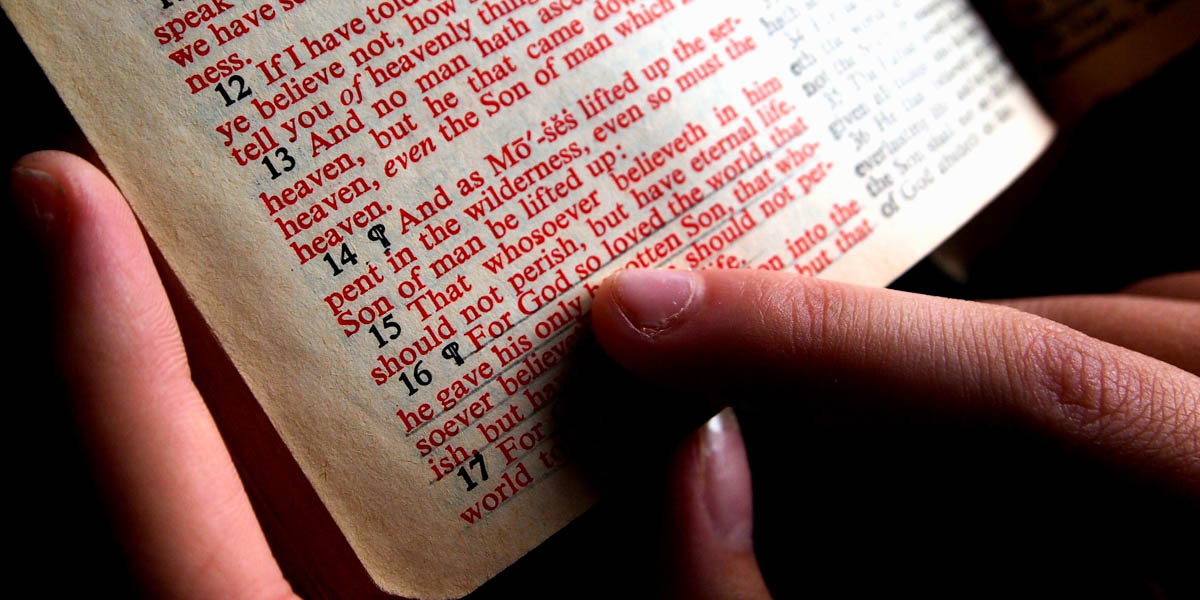 speak
we have
ness.
12 If I have
ye believe not, how
tell you of heavenly
13 And no man hath
heaven, but he that came
heaven, even the Son of man which
heaven.
14 ¶ And as Mō´-šĕš lifted up the ser-
pent in the wilderness, even so must the
Son of man be lifted up:
15 That whosoever believeth in him
should not perish, but have eternal life.
16 ¶ For God so loved the world, that
he gave his only b otten Son, that who-
soever believe should not per-
ish, but ha life.
17 For on into the
world to but that
not the
36 He that
the Son shall
of God abideth